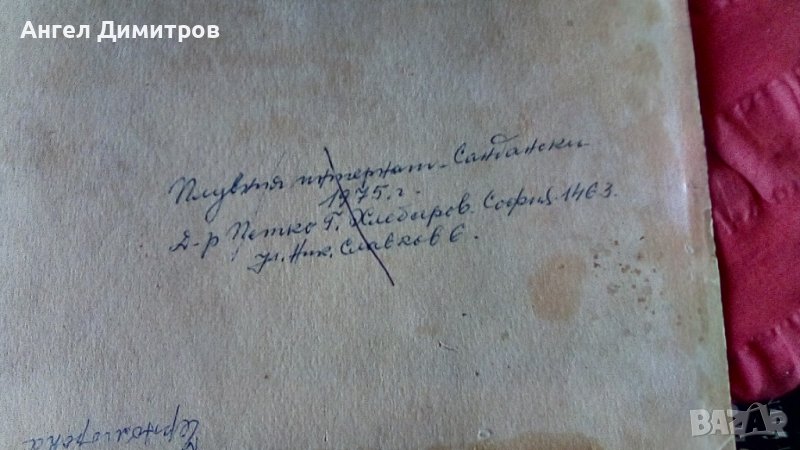 Ангел Димитров
интернат - Сандански
1975 г.
Д-р Петко Г. Хлебаров. София 1463.
ул. Ник. Славков 6.
Черноморска
BAZAR